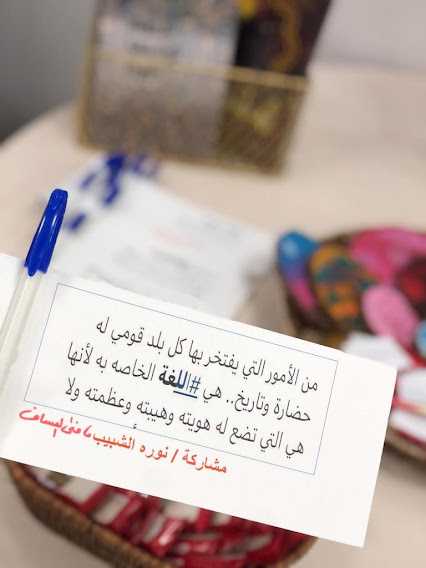 من الأمور التي يفتخر بها كل بلد قومي له
حضارة وتاريخ.. هي #اللغة الخاصه به لأنها
هي التي تضع له هويته وهيبته وعظمته ولا
مشاركة / نوره الشبيب